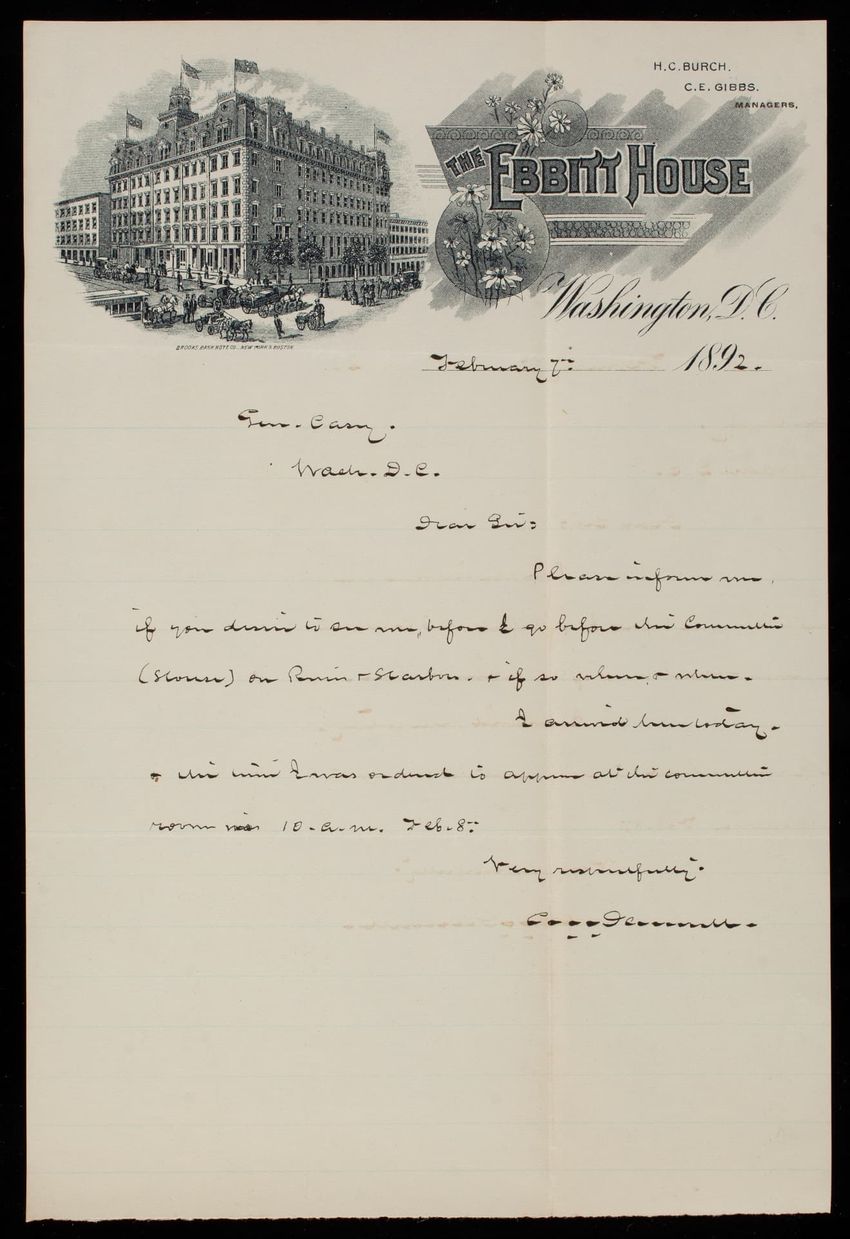 H.C. BURCH.
C.E. GIBBS.
MANAGERS.
THE EBBITT HOUSE
Washington, D.C.
BROOKS BANK NOTE CO. NEW YORK & BOSTON
February 7th 1892.
Gen. Casey.
Wash. D.C.
Dear Sir:
Please inform me,
if you desire to see me, before I go before the Committee
(House) on River & Harbor. & if so where, & when.
I arrived here today.
& the time I was ordered to appear at the committee
room was 10. a.m. Feb. 8th
Very respectfully.